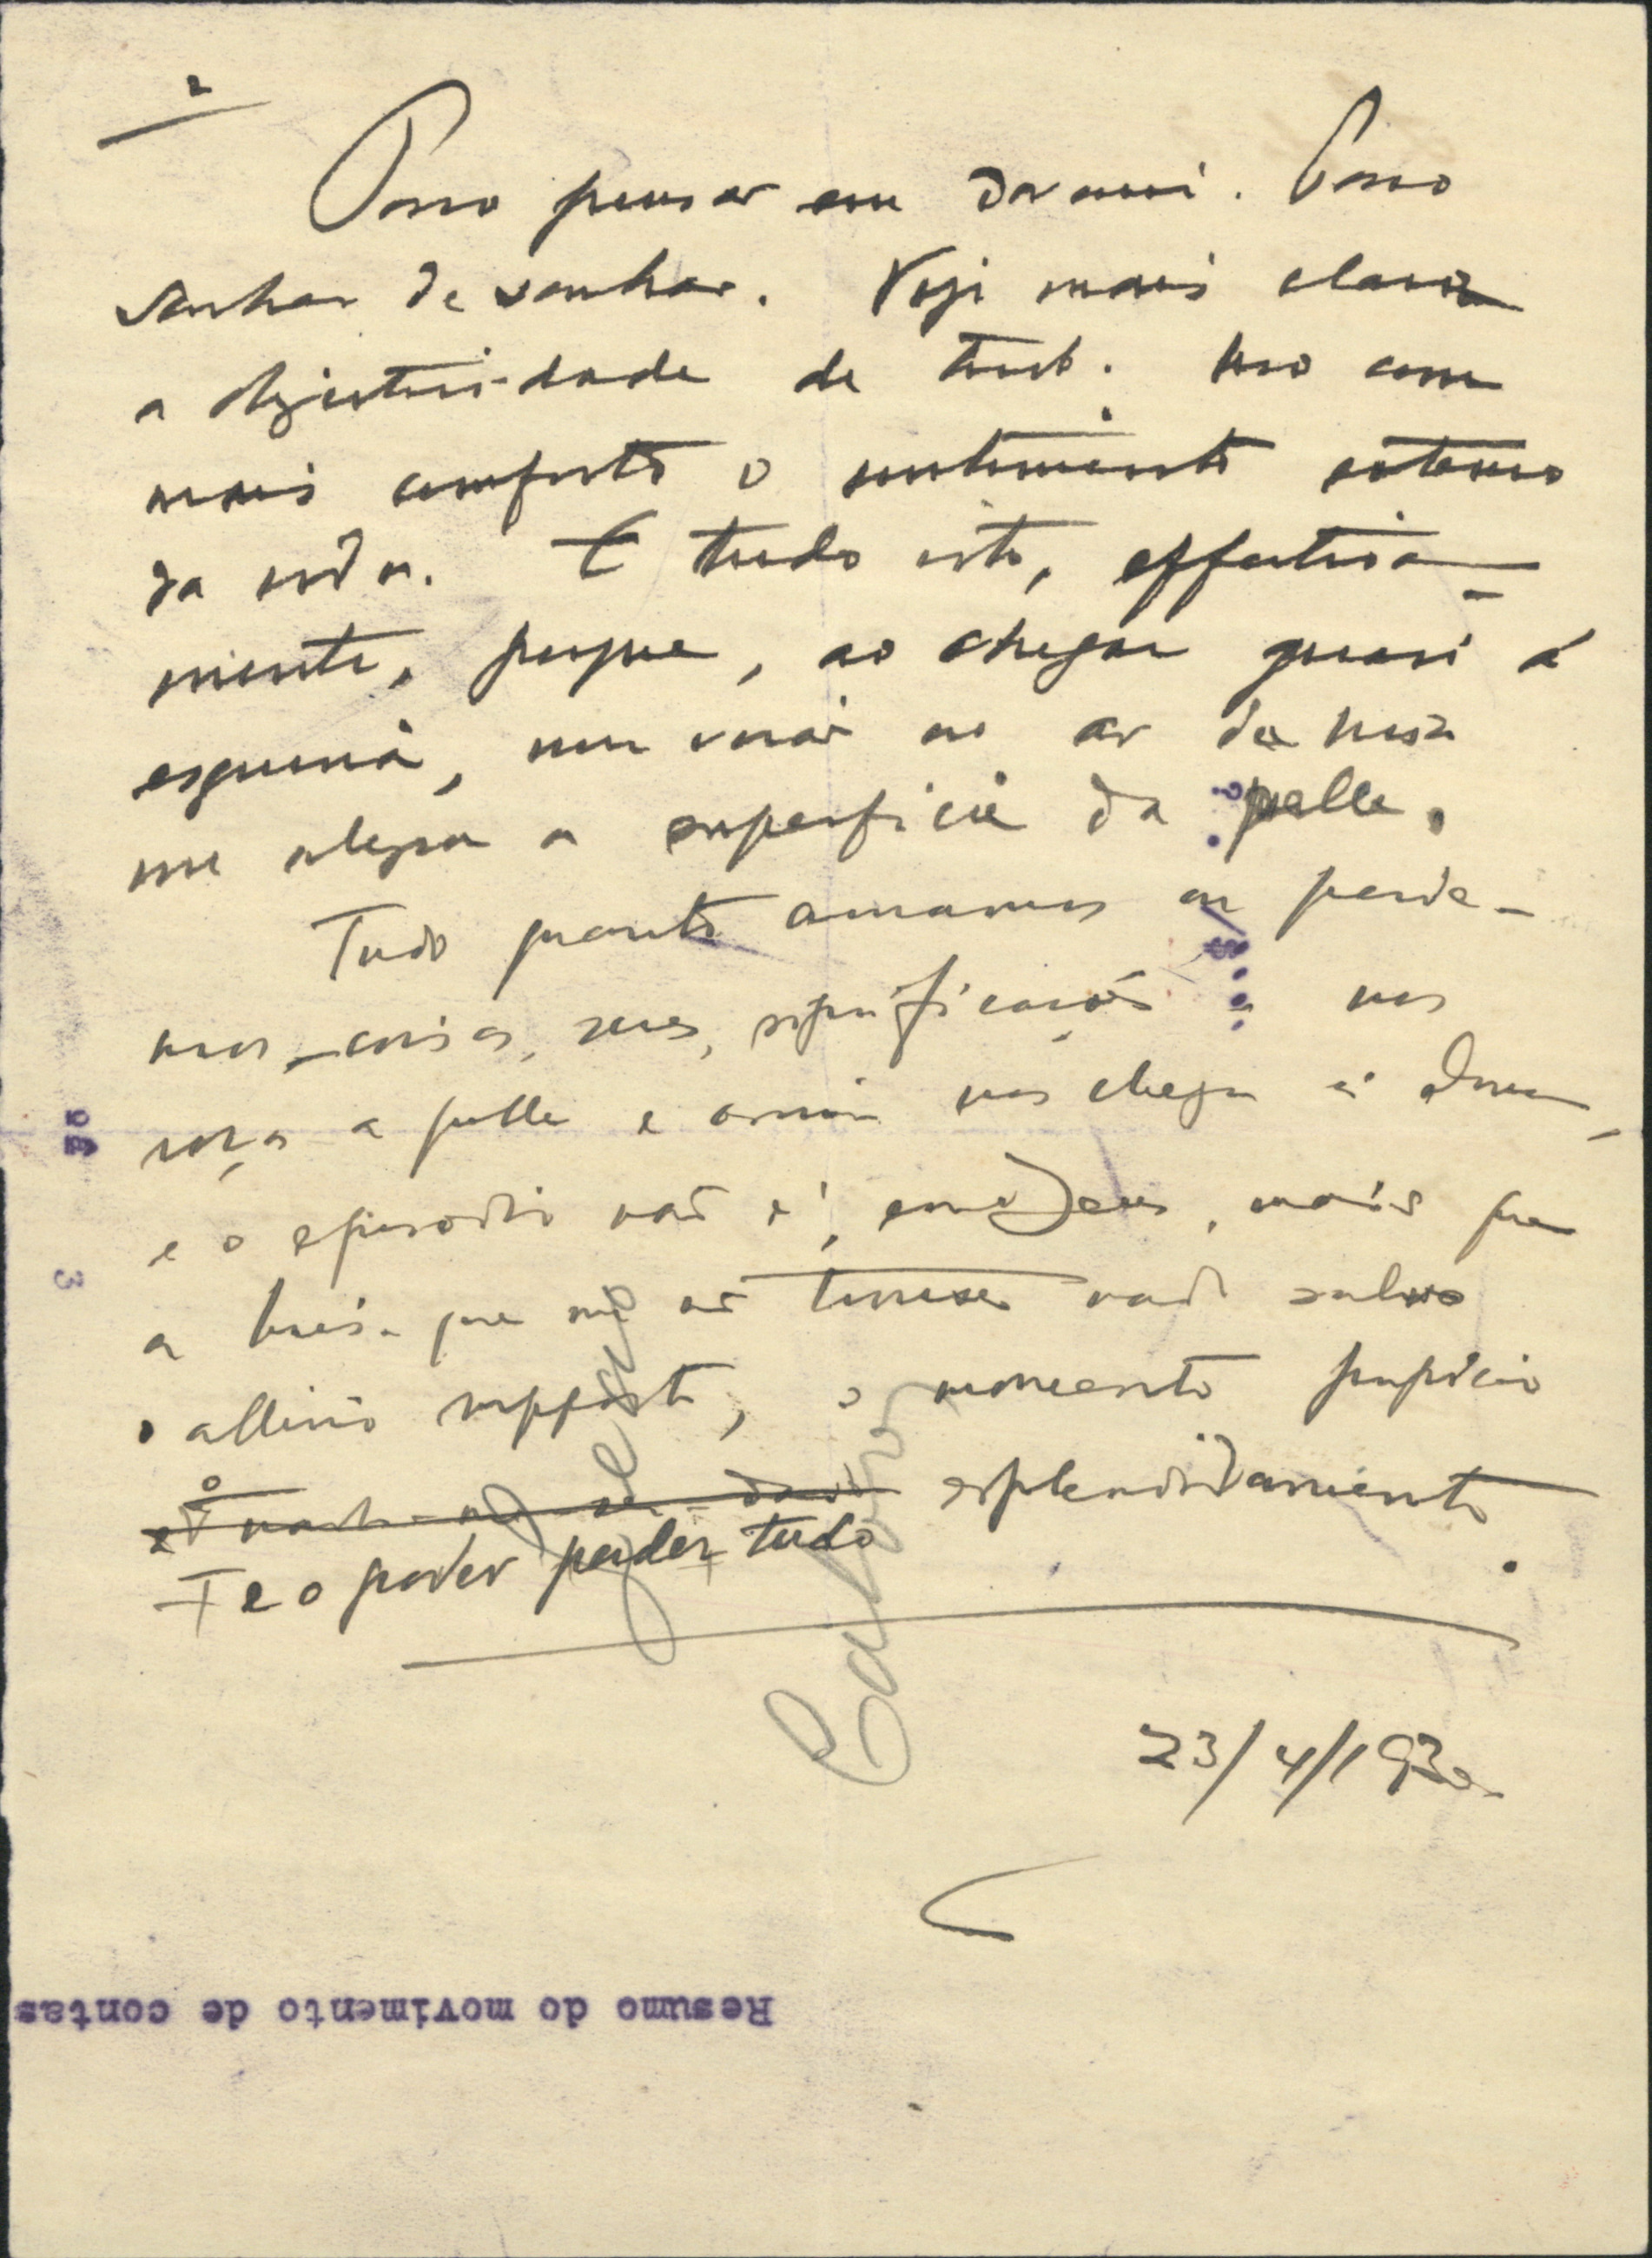 2
Posso pensar em dormir. Posso
sonhar de sonhar. Vejo mais claro
a objectividade de tudo. Uso com
mais conforto o sentimento externo
da vida. E tudo isto, effectiva-
mente, porque, ao chegar quasi á
esquina, um virar no ar da brisa
me alegra a superficie da pelle.
Tudo quanto amamos ou perde-
mos - coisas, seres, significações - nos
roça a pelle e assim nos chega á alma,
e o episodio não é, em Deus, mais que
a brisa que me não trouxe nada salvo
o allivio supposto, o momento propicio
esplendidamente.
e o poder perder tudo
23/4/1930
Resumo do movimento de contas